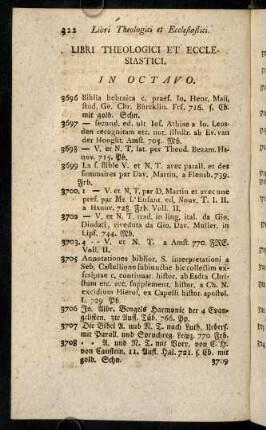 322 Libri Theologici et Ecclesiastici.
LIBRI THEOLOGICI ET ECCLE-
SIASTICI.
IN OCTAVO.
3696 Biblia hebraica c. praef. Io. Henr. Maii,
stud. Ge. Chr. Bürcklin. Frf. 716. s. Cb.
mit gold. Schn.
3697 — secund. ed. ult Ios. Athiae a Io. Leus-
den recognitam etc. not. illustr. ab Ev.
van der Hooght. Amst. 705. Mb.
3698 — V. et N. T. lat. per Theod. Bezam. Ha-
nov. 715. Pb.
3699 La s. Bible V. et N. T. avec parall. et des
sommaires par Dav. Martin, a Flensb. 739.
Frb.
3700, 1 — V. et N. T, par D. Martin et avec une
pref. par Mr. L'Enfant. ed. Nouv. T. I. II
a Hanov. 728. Frb. Voll. II.
3702 — V. et N. T. trad. in ling. ital. da Gio.
Diodati, riveduta da Gio. Dav. Muller. in
Lips. 744. Mb.
3703, 4 - - V. et N. T. a Amst 770. FNE.
Voll. II.
3705 Annotationes biblior. S. interpretationi a
Seb. Castellione subiunctae hic collectim ex-
scriptae c. continuac. histor. ab Esdra Chri-
stum etc. acc. supplement. histor. a Ch. N.
excidium Hierof. ex Capelli histor. apostol.
L. 729 Pb.
3706 Jo. Albr. Bengels Harmonie der 4 Evan-
gelisten. 3te Aufl. Tüb. 766. Pp.
3707 Die Bibel A. und N. T. nach Luth. Uebers.
mit Parall. und Spruchreg. Leipz. 770. Frb.
3708 - - A. und N. T. mit Vorr. von C. H.
von Canstein. 11. Aufl. Hal. 721. s. Cb. mit
gold. Schn. 3709